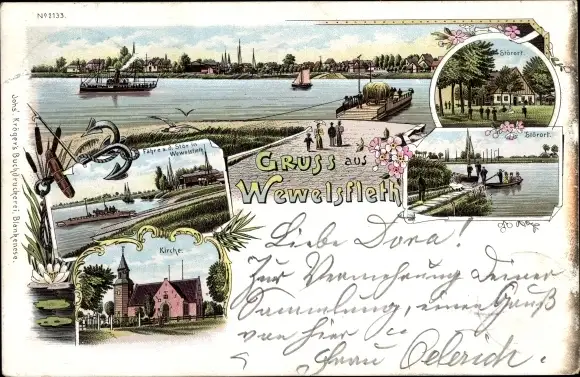 No 2133.
Störort.
Störort.
Fähre a. d. Stör in
Wewelsfleth
Gruss aus
Wewelsfleth
Kirche.
Johs. Kröger's Buchdruckerei Blankenese.
Liebe Dora!
Zur Vermehrung deiner
Sammlung, einen Gruß
von hier
Frau Oelerich.